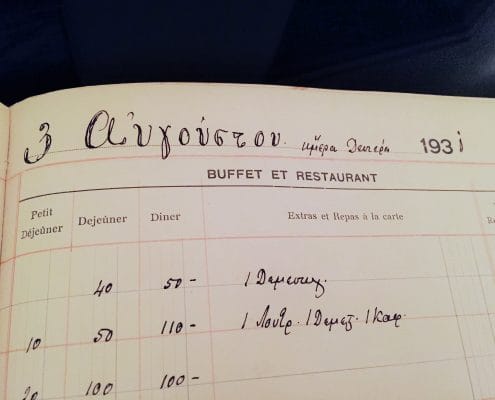 3 Αὐγούστου ἡμέρα Δευτέρα 1931
BUFFET ET RESTAURANT
Petit Déjeûner Dejeûner Diner Extras et Repas à la carte
40 50 -
10 50 110 - 1 Λουτρ. 1 Δεμεζ. 1 Καφ.
20 100 100 -